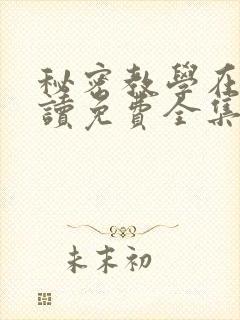 秘密教學在
讀免費全集
未末初